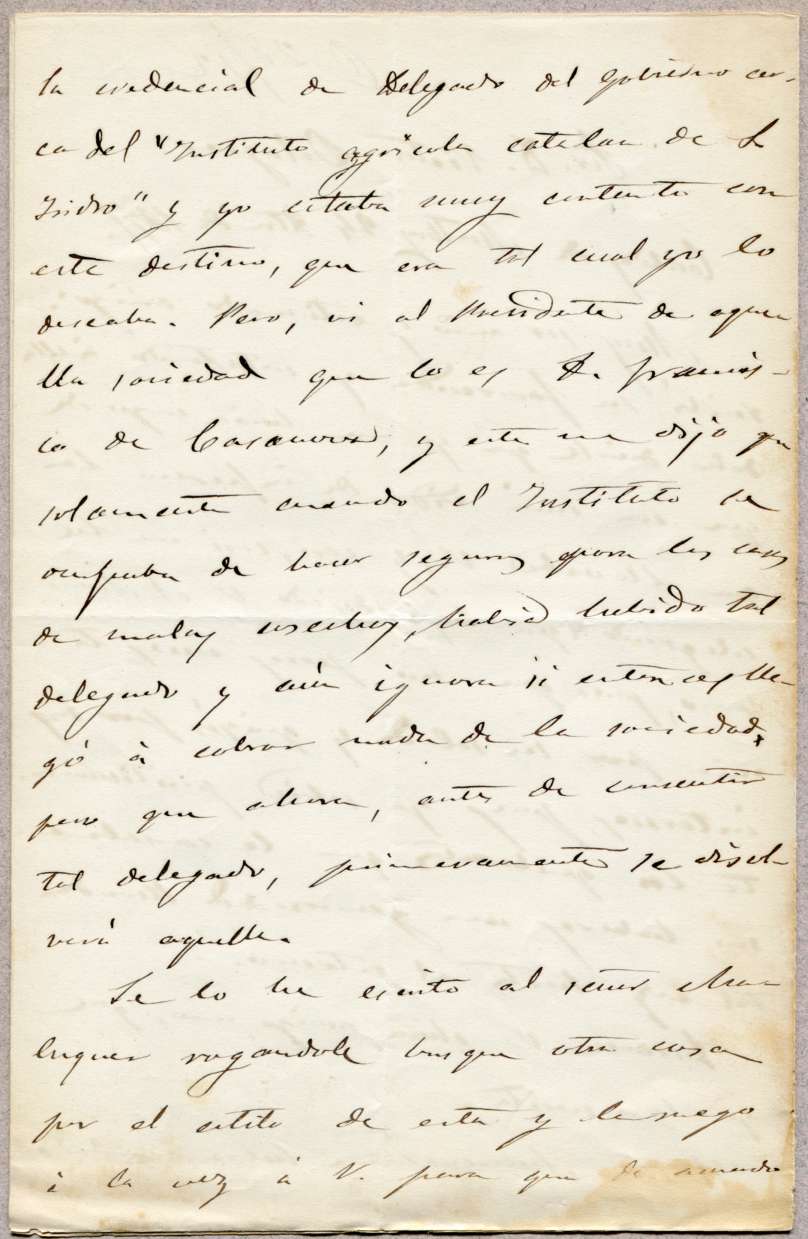 la credencial de Delegado del gobierno cer-
ca del "Instituto agricola catalan de S
Isidro" y yo estaba muy contento con
este destino, que era tal cual yo lo
deseaba. Pero, vi al Presidente de aque
lla sociedad que lo es D. Francis-
co de Casanovas, y este me dijo que
solamente cuando el Instituto se
ocupaba de hacer seguros para los casos
de malas cosechas, habia habido tal
delegado y aún ignora si entonces lle-
gó à cobrar nada de la sociedad,
pero que ahora, antes de consentir
tal delegado, primeramente se disol-
verá aquella.
Se lo he escrito al señor Ma-
luquer rogandole busque otra cosa
por el estilo de esta y le ruego
à la vez à V. para que de acuerdo